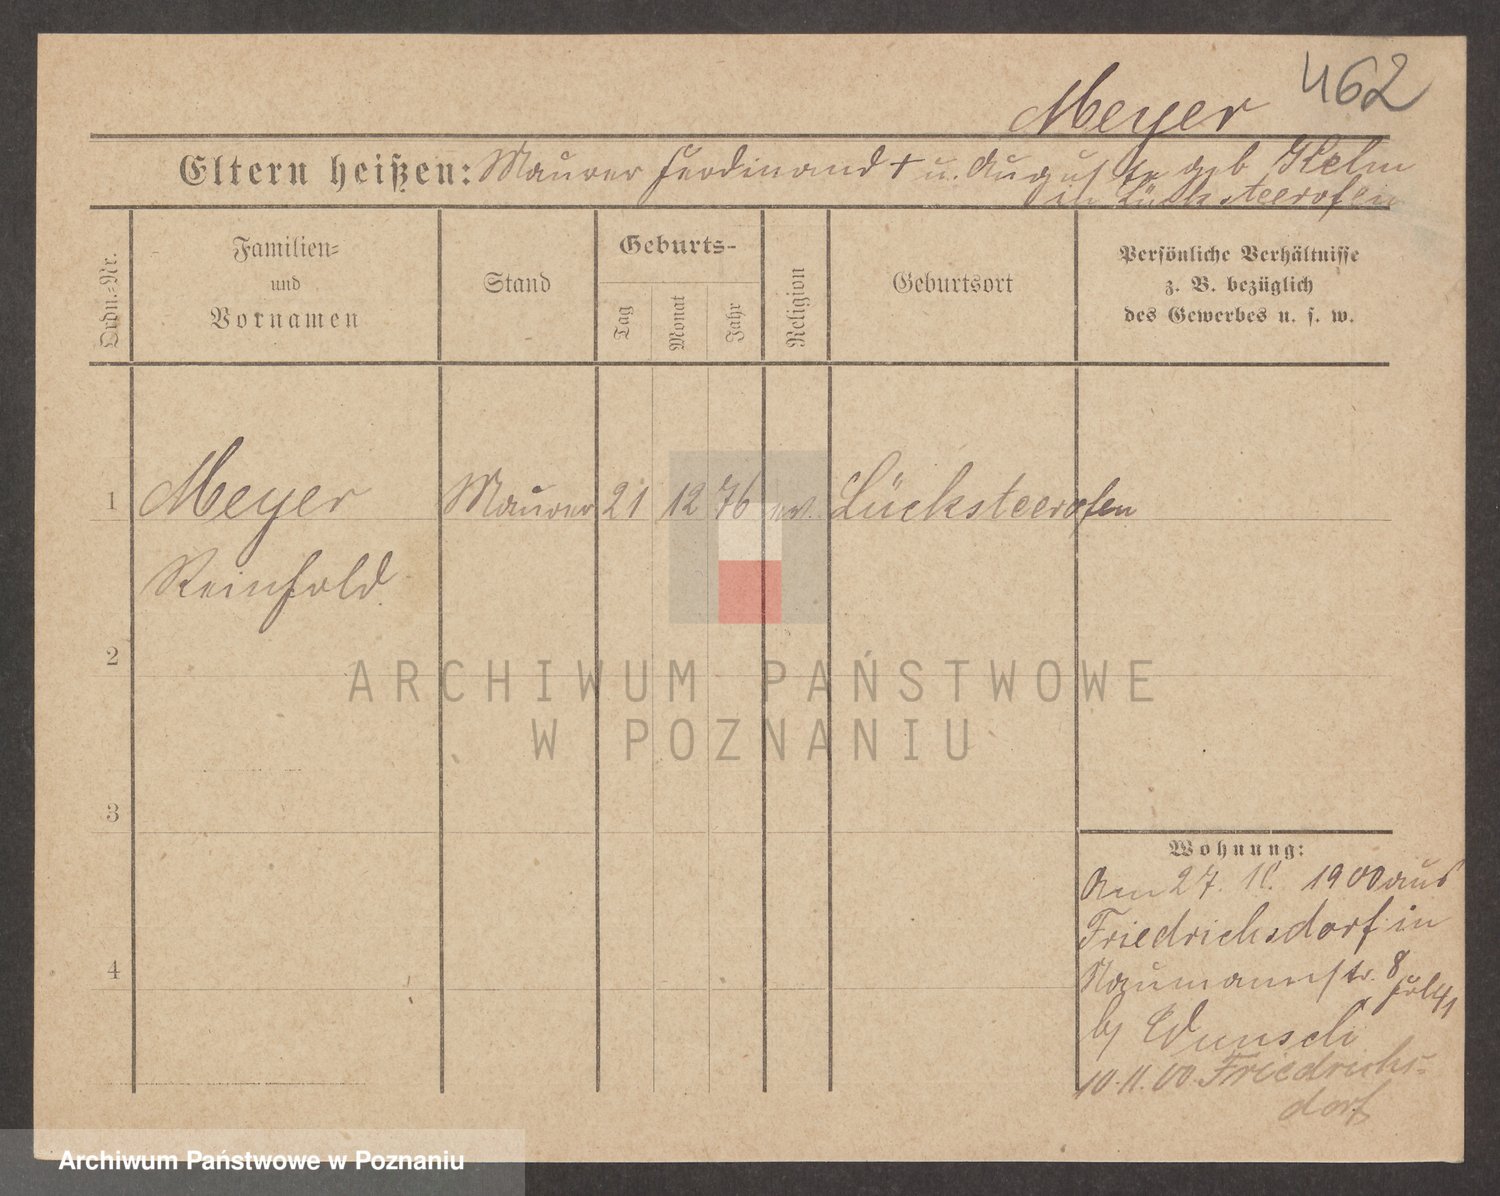 462
Meyer
Eltern heißen: Maurer Ferdinand + u. Auguste geb Helm
in Lücksteerofen
Ordn.-Nr.
Familien-
und
Vornamen
Stand
Geburts-
Tag
Monat
Jahr
Religion
Geburtsort
Persönliche Verhältnisse
z. B. bezüglich
des Gewerbes u. s. w.
1 Meyer Maurer 21 12 76 ev. Lücksteerofen
Reinhold
2
ARCHIWUM PAŃSTWOWE
W POZNANIU
3
Wohnung:
Am 27. 10. 1900 aus
Friedrichsdorf in
Naumannstr. 8
4
bj Wunsch
10.11.00 Friedrichs-
dorf
Archiwum Państwowe w Poznaniu